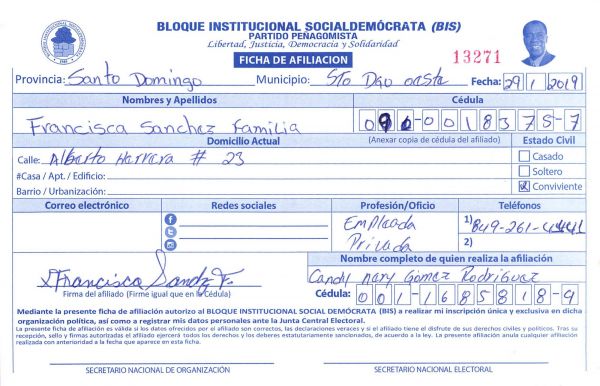 BLOQUE INSTITUCIONAL SOCIALDEMÓCRATA (BIS)
PARTIDO PEÑAGOMISTA
Libertad, Justicia, Democracia y Solidaridad
FICHA DE AFILIACION
13271
Provincia: Santo Domingo Municipio: Sto Dgo oeste Fecha: 29 1 2019
Nombres y Apellidos Cédula
Francisca Sanchez Familia 0 0 1 8 3 7 5 - 7
Domicilio Actual (Anexar copia de cédula del afiliado) Estado Civil
Calle: Alberto Harrera # 23 Casado
#Casa / Apt. / Edificio: Soltero
Barrio / Urbanización: Conviviente
Correo electrónico Redes sociales Profesión/Oficio Teléfonos
Empleada 1) 849-261-4441
Privada 2)
Nombre completo de quien realiza la afiliación
Francisca F. Candy Mary Gomez Rodriguez
Firma del afiliado (Firme igual que en la Cédula) Cédula: 0 0 1 - 1 6 8 5 8 1 8 - 9
Mediante la presente ficha de afiliación autorizo al BLOQUE INSTITUCIONAL SOCIAL DEMÓCRATA (BIS) a realizar mi inscripción única y exclusiva en dicha
organización política, así como a registrar mis datos personales ante la Junta Central Electoral.
La presente ficha de afiliación es válida si los datos ofrecidos por el afiliado son correctos, las declaraciones veraces y si el afiliado tiene el disfrute de sus derechos civiles y políticos. Tras su
recepción, sello y firmas autorizadas el afiliado ejercerá todos los derechos y los deberes estatutariamente sancionados, de acuerdo a la ley. La presente afiliación anula cualquier afiliación
realizada con anterioridad a la fecha que aparece en esta ficha.
SECRETARIO NACIONAL DE ORGANIZACIÓN SECRETARIO NACIONAL ELECTORAL